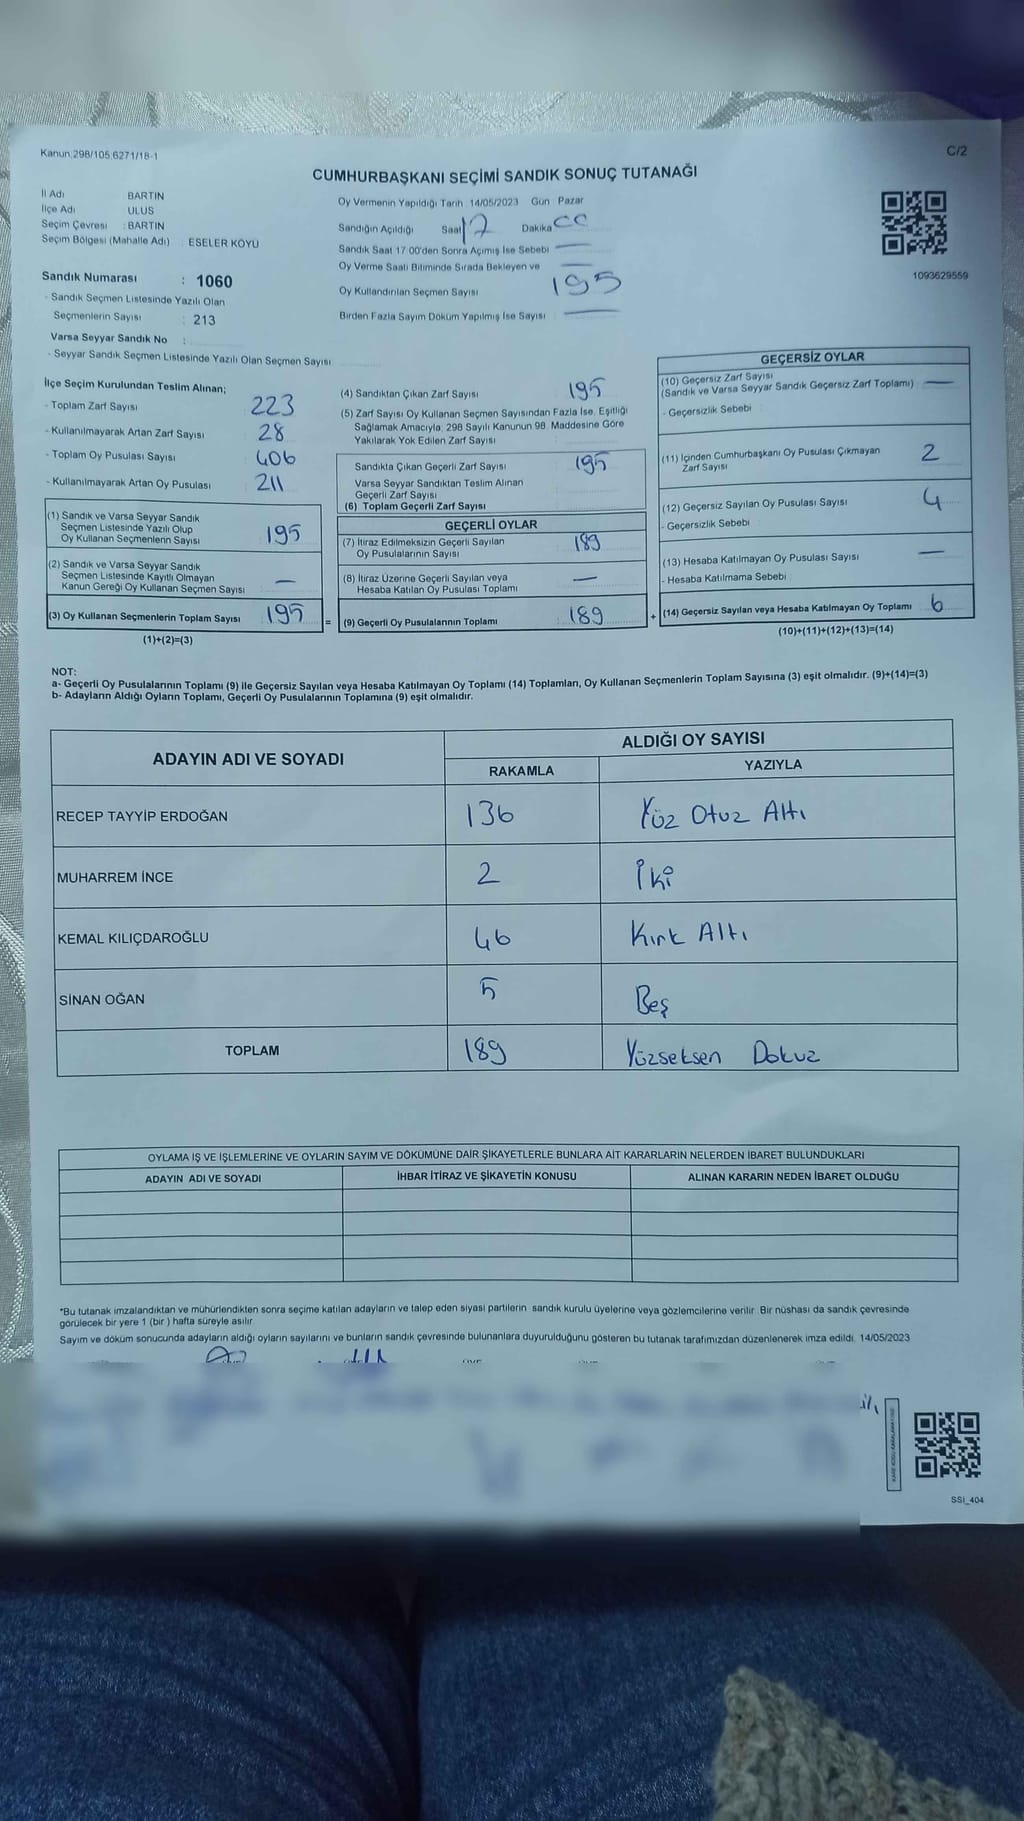 Kanun.298/105.6271/18-1
C/2
CUMHURBAŞKANI SEÇİMİ SANDIK SONUÇ TUTANAĞI
İl Adı : BARTIN
İlçe Adı : ULUS
Seçim Çevresi : BARTIN
Seçim Bölgesi (Mahalle Adı) : ESELER KÖYÜ
Sandık Numarası : 1060
- Sandık Seçmen Listesinde Yazılı Olan
Seçmenlerin Sayısı : 213
Varsa Seyyar Sandık No :
- Seyyar Sandık Seçmen Listesinde Yazılı Olan Seçmen Sayısı
Oy Vermenin Yapıldığı Tarih 14/05/2023 Gün Pazar
Sandığın Açıldığı Saat 17 Dakika
Sandık Saat 17 00'den Sonra Açımış İse Sebebi —
Oy Verme Saati Bitiminde Sırada Bekleyen ve —
Oy Kullandırılan Seçmen Sayısı 195
Birden Fazla Sayım Döküm Yapılmış İse Sayısı —
1093629559
İlçe Seçim Kurulundan Teslim Alınan;
- Toplam Zarf Sayısı 223
- Kullanılmayarak Artan Zarf Sayısı 28
- Toplam Oy Pusulası Sayısı 406
- Kullanılmayarak Artan Oy Pusulası 211
(1) Sandık ve Varsa Seyyar Sandık
Seçmen Listesinde Yazılı Olup
Oy Kullanan Seçmenlerin Sayısı 195
(2) Sandık ve Varsa Seyyar Sandık
Seçmen Listesinde Kayıtlı Olmayan
Kanun Gereği Oy Kullanan Seçmen Sayısı —
(3) Oy Kullanan Seçmenlerin Toplam Sayısı 195
(1)+(2)=(3)
(4) Sandıktan Çıkan Zarf Sayısı 195
(5) Zarf Sayısı Oy Kullanan Seçmen Sayısından Fazla İse, Eşitliği
Sağlamak Amacıyla, 298 Sayılı Kanunun 98. Maddesine Göre
Yakılarak Yok Edilen Zarf Sayısı
Sandıkta Çıkan Geçerli Zarf Sayısı 195
Varsa Seyyar Sandıktan Teslim Alınan
Geçerli Zarf Sayısı
(6) Toplam Geçerli Zarf Sayısı
GEÇERLİ OYLAR
(7) İtiraz Edilmeksizin Geçerli Sayılan
Oy Pusulalarının Sayısı 189
(8) İtiraz Üzerine Geçerli Sayılan veya
Hesaba Katılan Oy Pusulası Toplamı —
= (9) Geçerli Oy Pusulalarının Toplamı 189
GEÇERSİZ OYLAR
(10) Geçersiz Zarf Sayısı
(Sandık ve Varsa Seyyar Sandık Geçersiz Zarf Toplamı) —
- Geçersizlik Sebebi
(11) İçinden Cumhurbaşkanı Oy Pusulası Çıkmayan
Zarf Sayısı 2
(12) Geçersiz Sayılan Oy Pusulası Sayısı 4
- Geçersizlik Sebebi
(13) Hesaba Katılmayan Oy Pusulası Sayısı —
- Hesaba Katılmama Sebebi
+ (14) Geçersiz Sayılan veya Hesaba Katılmayan Oy Toplamı 6
(10)+(11)+(12)+(13)=(14)
NOT:
a- Geçerli Oy Pusulalarının Toplamı (9) ile Geçersiz Sayılan veya Hesaba Katılmayan Oy Toplamı (14) Toplamları, Oy Kullanan Seçmenlerin Toplam Sayısına (3) eşit olmalıdır. (9)+(14)=(3)
b- Adayların Aldığı Oyların Toplamı, Geçerli Oy Pusulalarının Toplamına (9) eşit olmalıdır.
ADAYIN ADI VE SOYADI
ALDIĞI OY SAYISI
RAKAMLA YAZIYLA
RECEP TAYYİP ERDOĞAN 136 Yüz Otuz Altı
MUHARREM İNCE 2 İki
KEMAL KILIÇDAROĞLU 46 Kırk Altı
SİNAN OĞAN 5 Beş
TOPLAM 189 Yüzseksen Dokuz
OYLAMA İŞ VE İŞLEMLERİNE VE OYLARIN SAYIM VE DÖKÜMÜNE DAİR ŞİKAYETLERLE BUNLARA AİT KARARLARIN NELERDEN İBARET BULUNDUKLARI
ADAYIN ADI VE SOYADI İHBAR İTİRAZ VE ŞİKAYETİN KONUSU ALINAN KARARIN NEDEN İBARET OLDUĞU
*Bu tutanak imzalandıktan ve mühürlendikten sonra seçime katılan adayların ve talep eden siyasi partilerin sandık kurulu üyelerine veya gözlemcilerine verilir. Bir nüshası da sandık çevresinde
görülecek bir yere 1 (bir ) hafta süreyle asılır
Sayım ve döküm sonucunda adayların aldığı oyların sayılarını ve bunların sandık çevresinde bulunanlara duyurulduğunu gösteren bu tutanak tarafımızdan düzenlenerek imza edildi. 14/05/2023
SSI_404